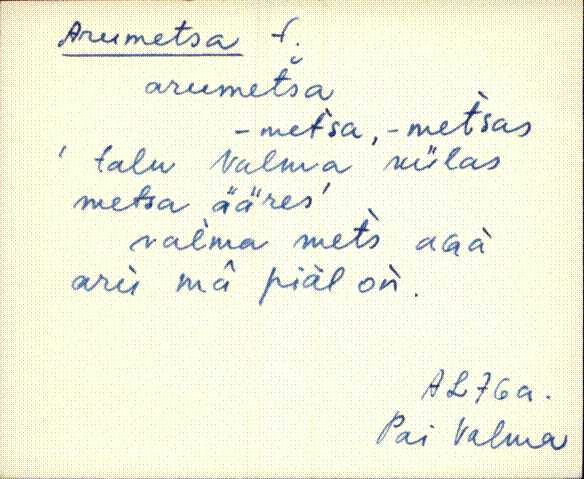 Arumetsa t.
arumetša
-metsa, -metsas
'talu Valma külas
metsa ääres'
valma mets aga
aru mâ piäl on.
AL76a.
Pai Valma